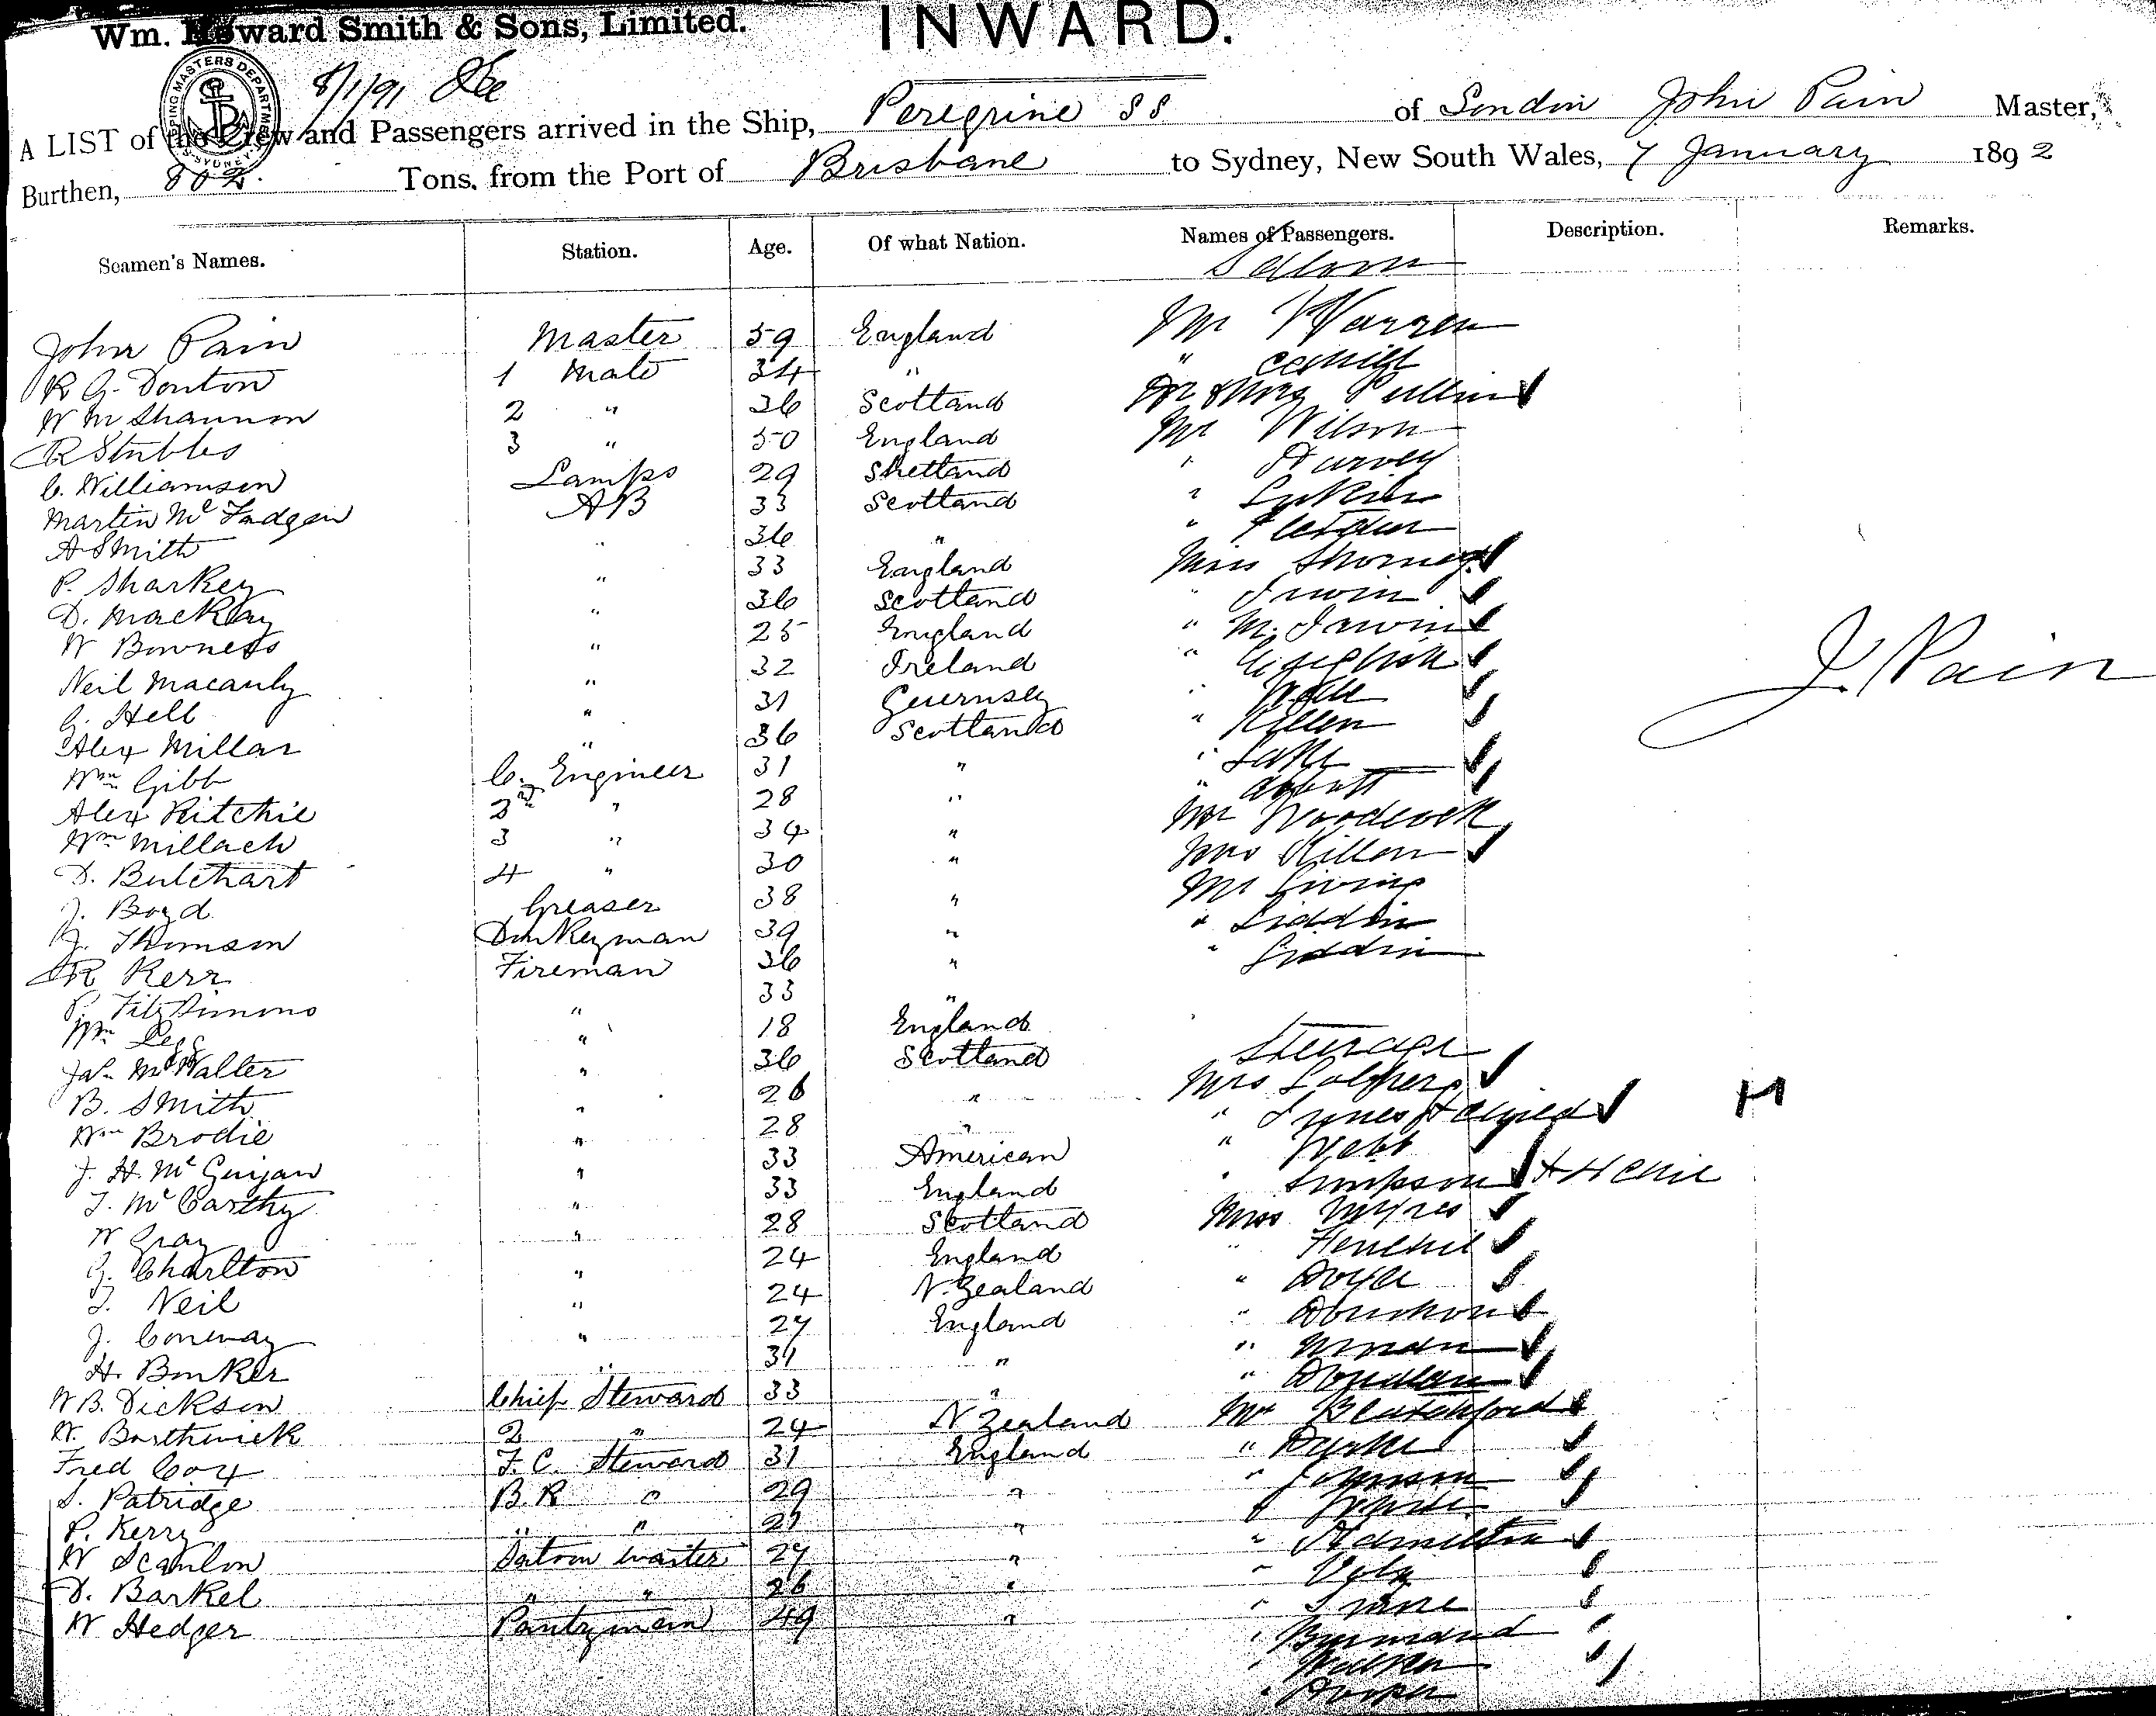 Wm. Howard Smith & Sons, Limited.
INWARD.
SHIPPING MASTERS DEPARTMENT SYDNEY
8/1/91
A LIST of the Crew and Passengers arrived in the Ship, Peregrine SS of London John Pain Master,
Burthen, 802 Tons, from the Port of Brisbane to Sydney, New South Wales, 7 January 1892
Seamen's Names. Station. Age. Of what Nation. Names of Passengers. Description. Remarks.
Saloon
John Pain Master 59 England Mr Warren
R G. Donton 1 Mate 34 " " Cahill
W McShannon 2 " 36 Scotland Dr & Mrs Pullin
R Stubbs 3 " 50 England Mr Wilson
C. Williamson Lamps 29 Shetland " Harvey
Martin Mc Fadgen AB 33 Scotland "
A Smith " 36 " " Fletcher
P. Sharkey " 33 England Miss
D. Mackay " 36 Scotland " Irwin
W Bowness " 25 England " M. Irwin
Neil Macauly " 32 Ireland " English
G. Hell " 31 Guernsey "
Alex Millar " 36 Scotland " Killen
Wm Gibb C. Engineer 31 " "
Alex Ritchie 2nd " 28 " " Abbott
Wm Millach 3 " 34 " Mr Woodcock
D. Bulchart 4 " 30 " Mrs Killen
J. Boyd Greaser 38 " Mr
J. Thomson Donkeyman 39 " " Liddin
R Kerr Fireman 36 " " Liddin
P. FitzSimons " 33 "
Wm Legg " 18 England
Steerage
Jas. McWalter " 36 Scotland Mrs
B. Smith " 26 " " Innes & child
Wm Brodie " 28 " " Webb
J. H. Mc Guigan " 33 American " Simpson
J. Mc Carthy " 33 England Miss
W Gray " 28 Scotland "
G. Charlton " 24 England " Doyle
J. Neil " 24 N. Zealand "
J. Conway " 27 England "
H. Bunker " 31 " "
W B. Dickson Chief Steward 33 " Mr Blatchford
W. Borthwick 2 " 24 N Zealand "
Fred Cox F. C. Steward 31 England " Johnson
S. Patridge B. R " 29 "
P. Kerry " " 21 " " Hamilton
W Scanlon Saloon Waiter 27 " "
D. Barkel " " 26 " "
W Hedger Pantryman 49 " "
"
" Hooper
J. Pain